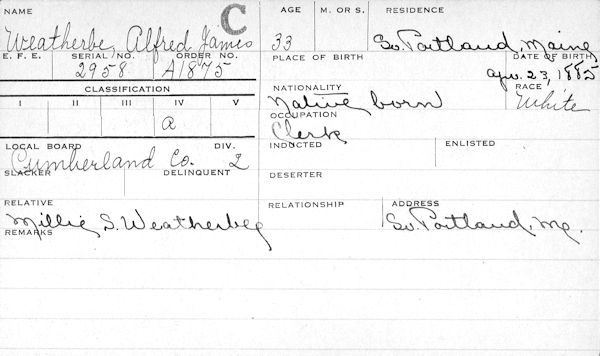 C
NAME AGE M. OR S. RESIDENCE
Weatherbe, Alfred James 33 So. Portland, Maine
E. F. E. SERIAL NO. ORDER NO. PLACE OF BIRTH DATE OF BIRTH
2958 A1875 Apr. 23, 1885
CLASSIFICATION NATIONALITY RACE
I II III IV V Native born White
OCCUPATION
a Clerk
LOCAL BOARD DIV. INDUCTED ENLISTED
Cumberland Co. 2
SLACKER DELINQUENT DESERTER
RELATIVE RELATIONSHIP ADDRESS
Millie S. Weatherbee So. Portland, Me.
REMARKS